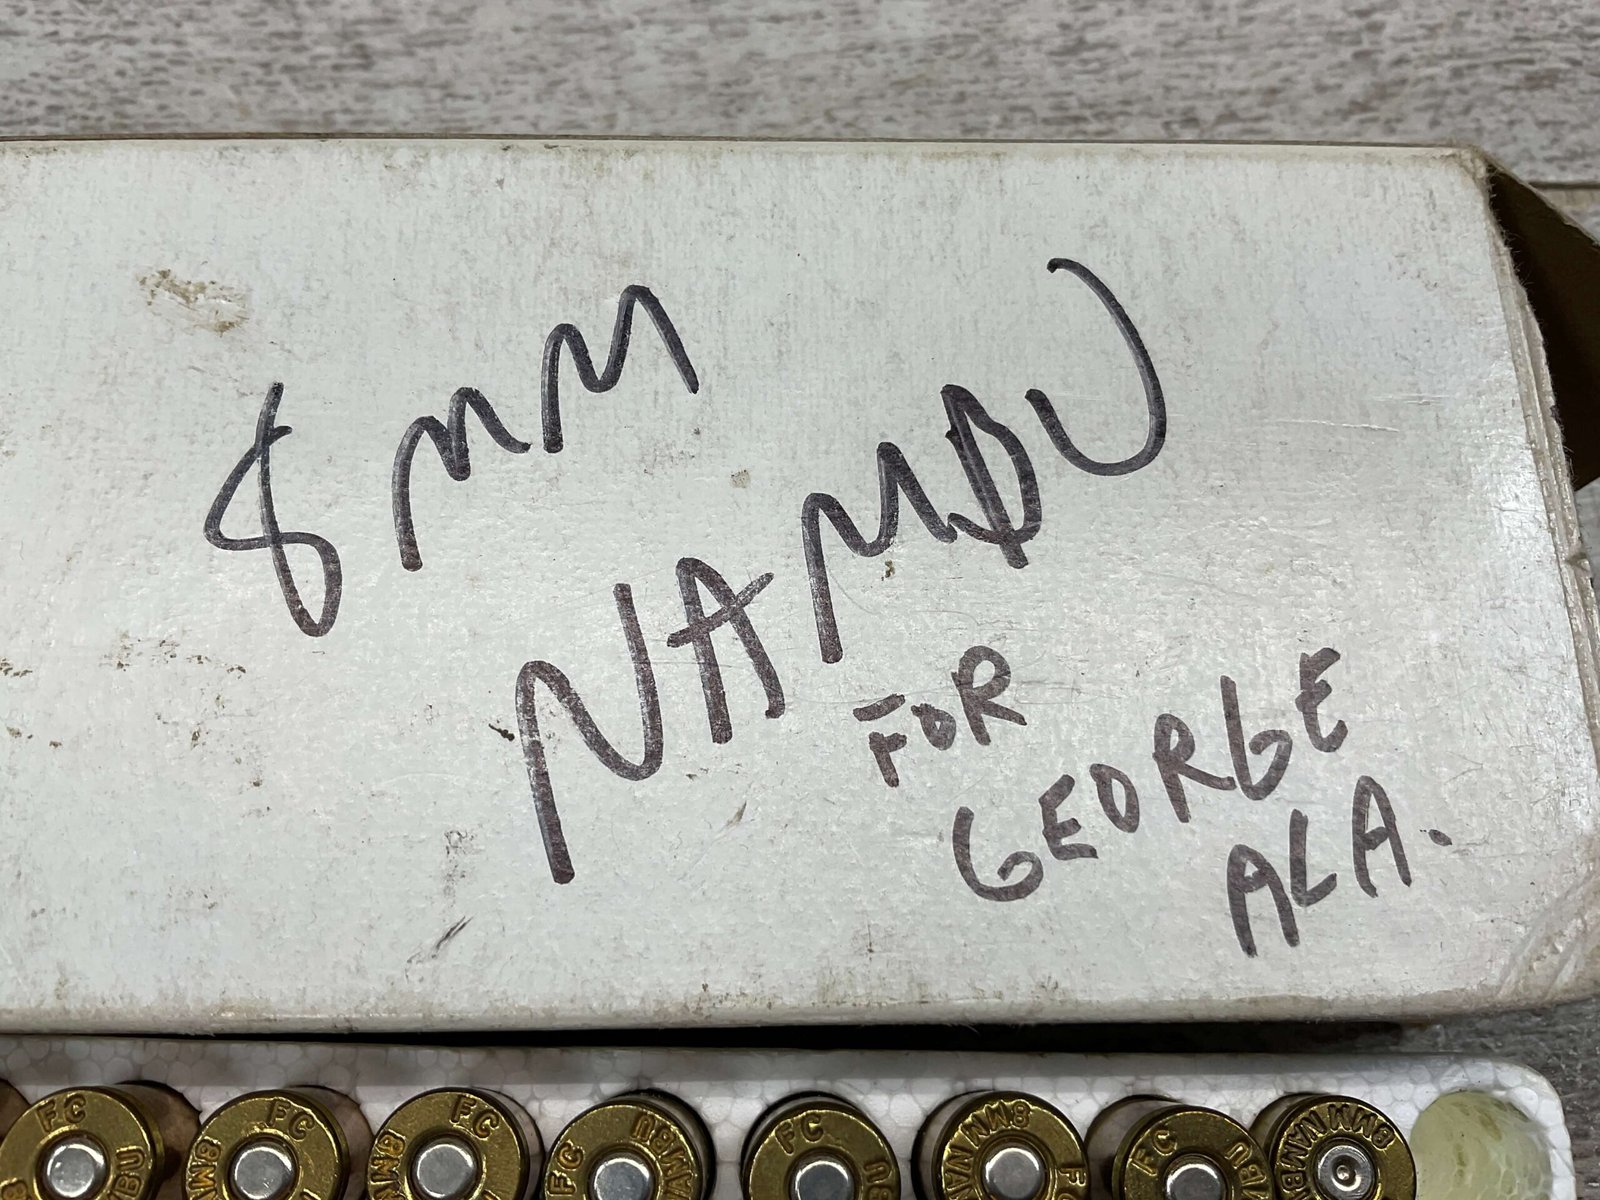 8MM
NAMBU
FOR
GEORGE
ALA.
FC NAMBU
FC 8MM
FC 8MM
FC NAMBU
FC
8MM NAMBU FC
FC NAMBU
8MM NAMBU